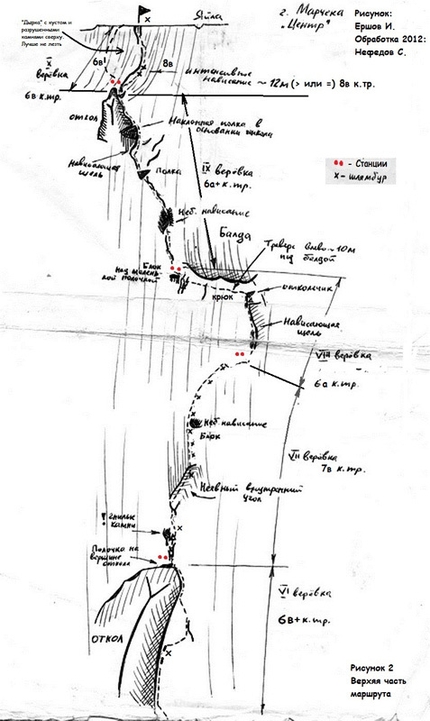 "Дырка" с кустом и
разрушенными
камнями сверху.
Лучше не лезть
Яйла
г. Марчека
"Центр"
Рисунок:
Ершов И.
Обработка 2012:
Нефедов С.
x
X
верёвка
6в к.тр.
6в!
8в
интенсивное
нависание ~ 12м (> или =) 8в к.тр.
откол
Наклонная полка в
основании откола
Нависающая
щель
полка
IX верёвка
6а+ к.тр.
•• - Станции
x - шлямбур
Неб. нависание
Балда
Траверс влево ~10м
под балдой
Блок
над малень-
кой полочкой
крюк
откольчик
Нависающая
щель
VIII верёвка
6а к.тр.
Неб. нависание
Блок
VII верёвка
7в к.тр.
Неявный внутренний
угол
! гнилые
камни
Полочка на
вершине
откола
VI верёвка
6в+ к.тр.
откол
Рисунок 2
Верхняя часть
маршрута